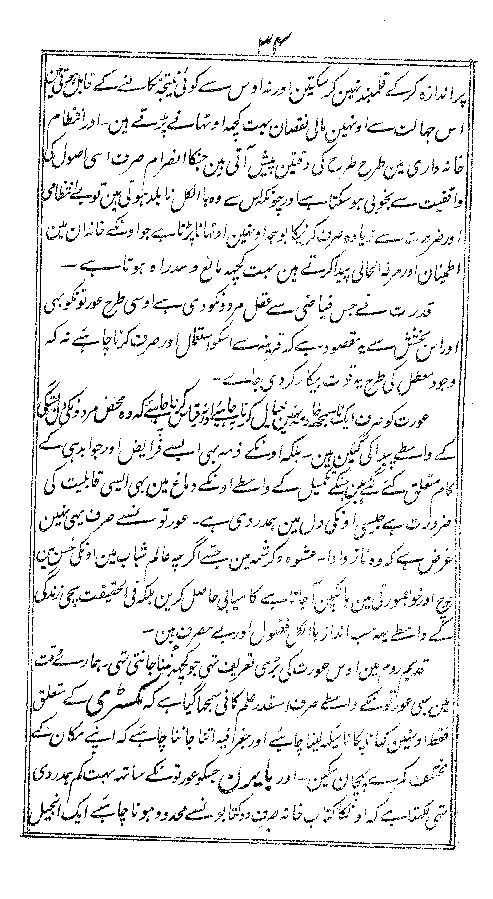 ۳۴
پر اندازہ کر کے قلمبند نہین کر سکتین اور نہ اوس سے کوئی نتیجہ نکالنے کے قابل ہوتی ہین
اس جہالت سے اونہین مالی نقصان بہت کچہہ اوٹھانے پڑتے ہین۔ اور انتظام
خانہ داری مین طرح طرح کی دقتین پیش آتی ہین جنکا انصرام صرف اسی اصول کی
واقفیت سے بخوبی ہو سکتا ہے اور چونکہ اس سے وہ بالکل نا بلد ہوتی ہین تو بے انتظامی
اور ضرورت سے زیادہ صرف کرنیکا بوجہہ اونہین اوٹھانا پڑتا ہے جو اونکے خاندان مین
اطمینان اور مرفہ الحالی پیدا کرنے مین بہت کچہہ مانع و سد راہ ہوتا ہے۔
قدرت نے جس فیاضی سے عقل مردونکو دی ہے اوسی طرح عورتونکو بھی
اور اس بخشش سے یہ مقصود ہے کہ قرینہ سے اسکو استعمال اور صرف کرنا چاہئے نہ کہ
وجود معطل کی طرح یہ قوت بیکار کر دی جاے۔
عورت کو صرف ایک نہین خیال کرنا چاہئے اور نہ قیاس کرنا چاہئے کہ وہ محض مردونکی دل لگی
کے واسطے پیدا کی گئین ہین۔ بلکہ اونکے ذمہ بہی ایسے فرایض اور جوابدہی کے
کام متعلق کئے گئے ہین جنکے تکمیل کے واسطے اونکے دماغ مین بہی ایسی قابلیت کی
ضرورت ہے جیسی اونکی دل مین ہمدردی ہے۔ عورتونسے صرف یہی نہین
غرض ہے کہ وہ ناز و ادا۔ عشوہ و کرشمہ مین جسنے اگرچہ عالم شباب مین اونکی حسن مین
اور خوبصورتی مین بانکپن آ جاتا ہے کامیابی حاصل کرین بلکہ فی الحقیقت سچی زندگی
کے واسطے یہ سب انداز بالکل فضول اور بے مصرف ہین۔
قدیم روم مین اوس عورت کی بڑی تعریف تھی جو کچہہ بننا جانتی تھی۔ ہمارے وقت
مین بہی عورتونکے واسطے صرف اسقدر علم کافی سمجھا گیا ہے کہ کمسٹری کے متعلق
فقط اونہین کھانا پکانا سیکھہ لینا چاہئے اور جغرافیہ اتنا جاننا چاہئے کہ اپنے مکان کے
مختلف کمرے پہچان سکین۔ اور بایرن جسکو عورتونکے ساتہہ بہت کم ہمدردی
تھی لکھتا ہے کہ اونکا کتاب خانہ صرف دو کتابونسے محدود ہونا چاہئے ایک انجیل